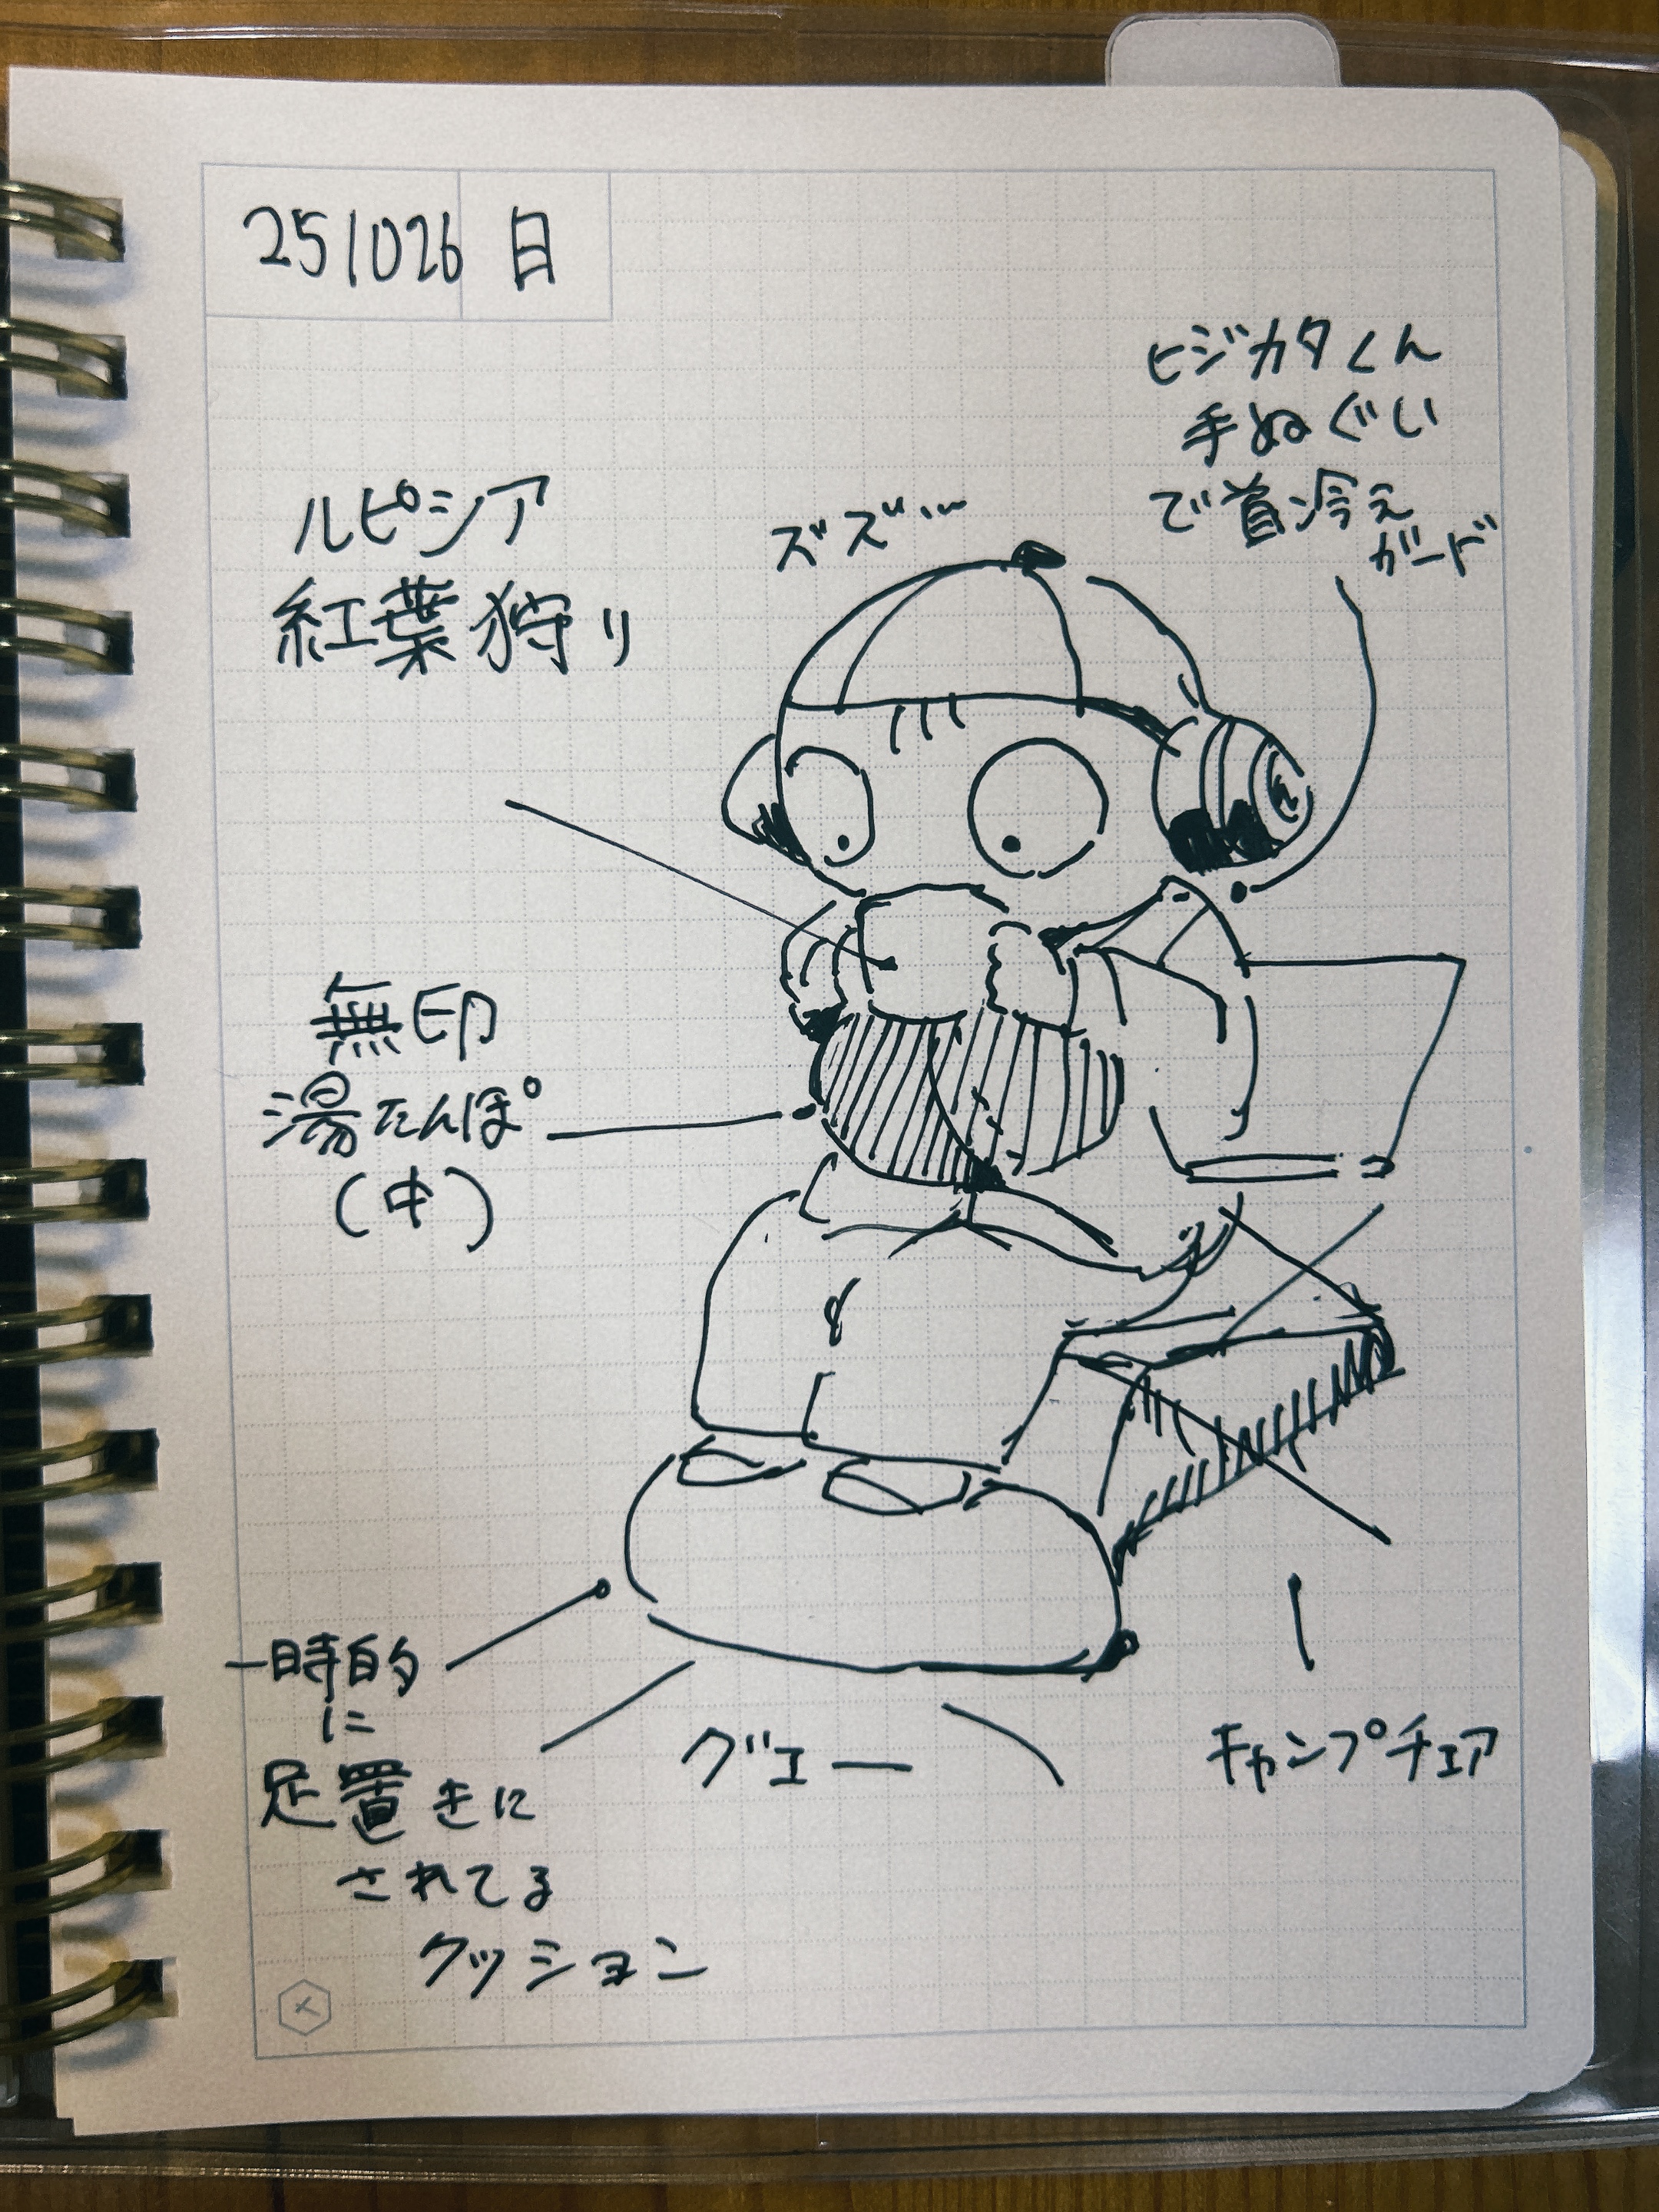 251026 日
ヒジカタくん
手ぬぐい
で首冷え
ガード
ズズ…
ルピシア
紅葉狩り
無印
湯たんぽ
(中)
一時的
に
足置きに
されてる
クッション
グエー
キャンプチェア